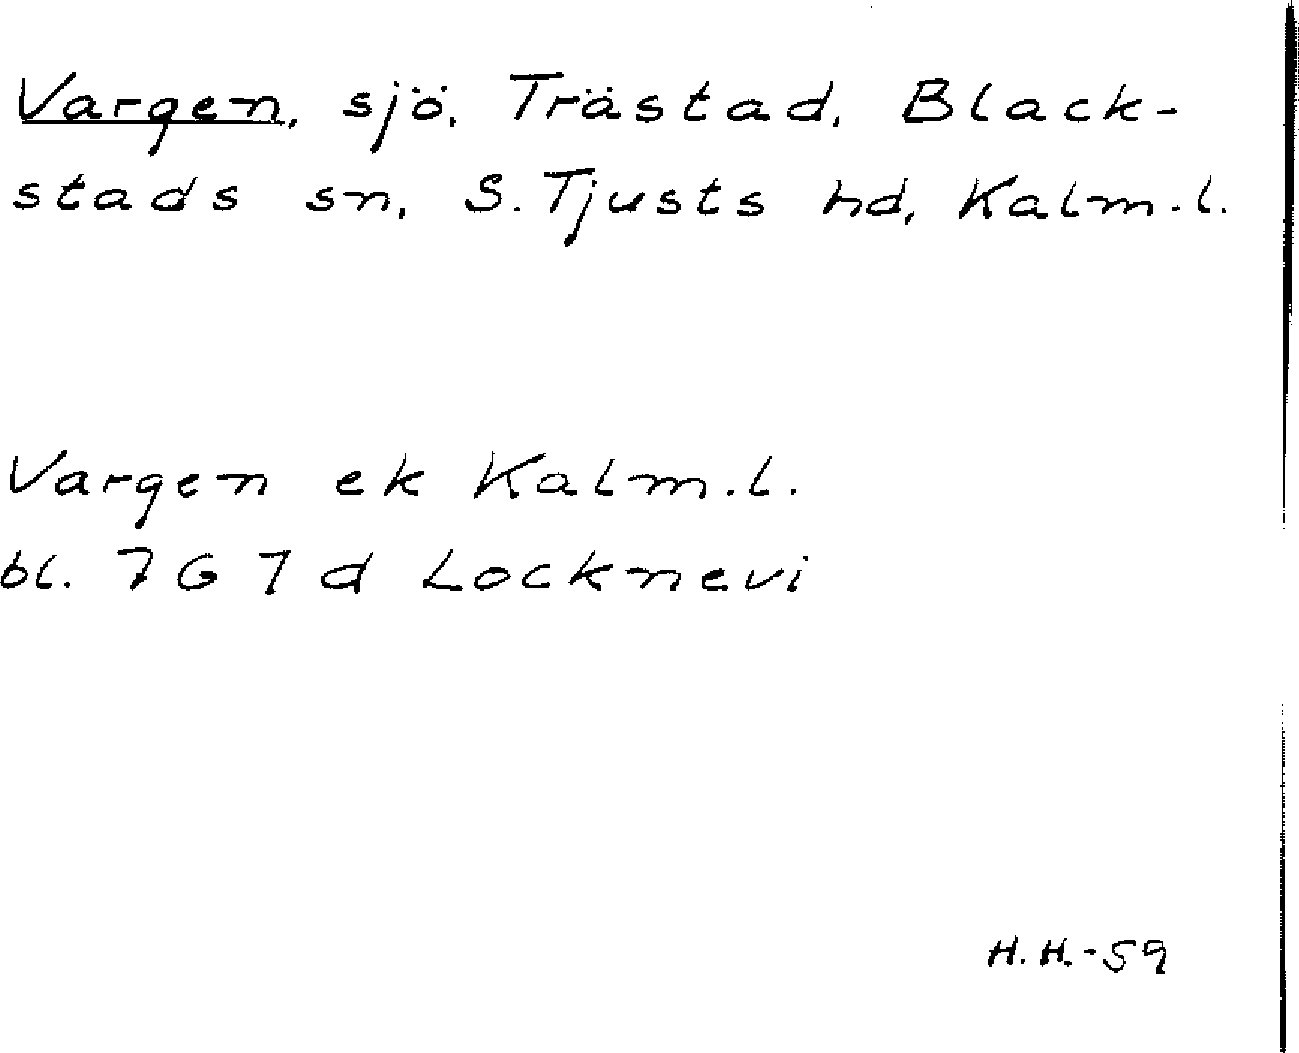 Vargen, sjö, Trästad, Black-
stads sn, S. Tjusts hd, Kalm.l.
Vargen ek Kalm.l.
bl. 7 G 7 d Locknevi
H.H.-59